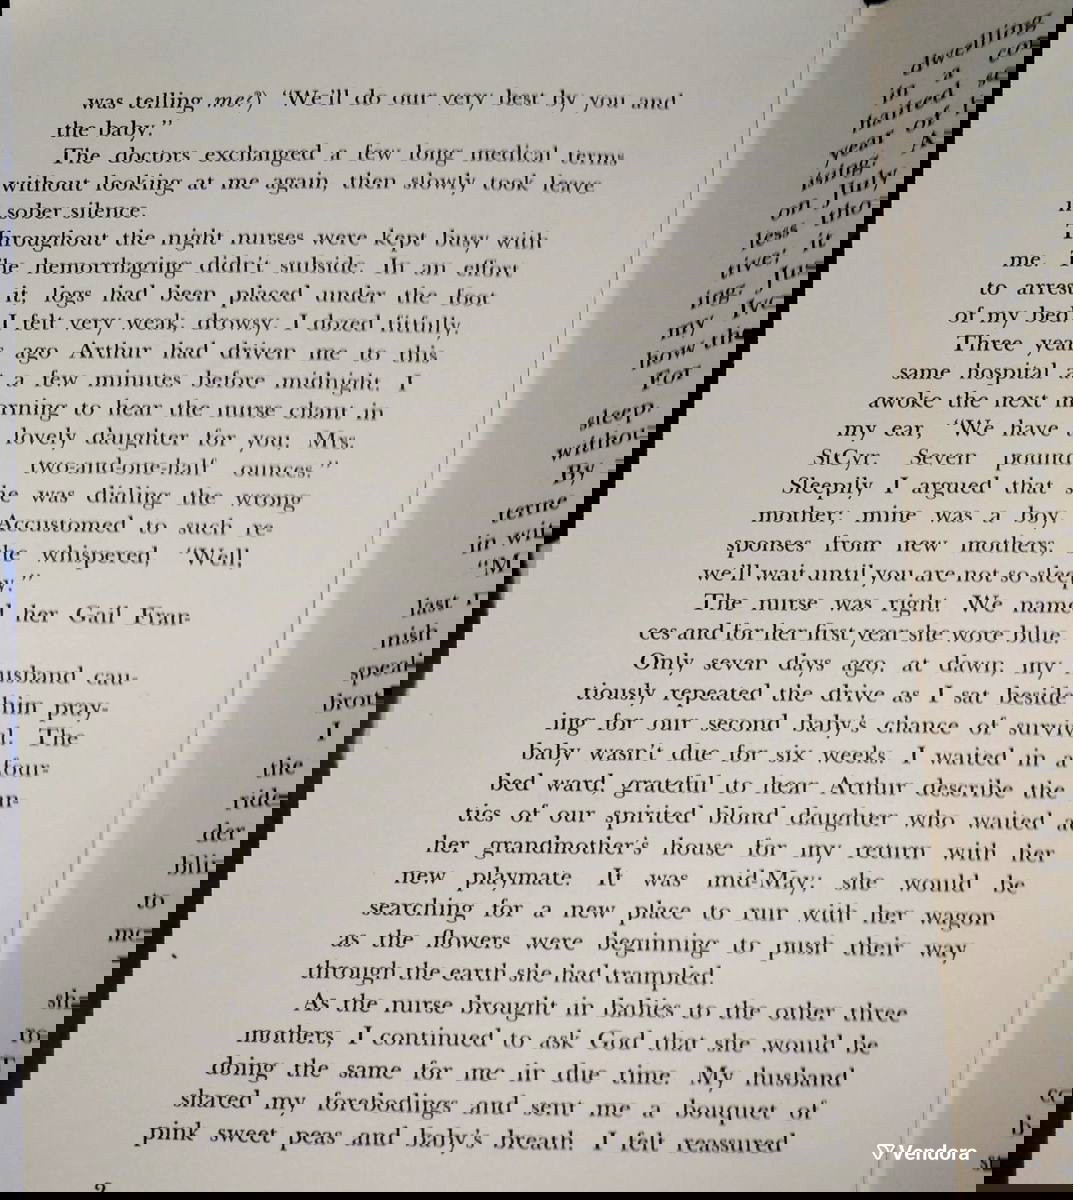 was telling me?) "We'll do our very best by you and
the baby."
The doctors exchanged a few long medical terms
without looking at me again, then slowly took leave
in sober silence.
Throughout the night nurses were kept busy with
me. The hemorrhaging didn't subside. In an effort
to arrest it, logs had been placed under the foot
of my bed. I felt very weak, drowsy. I dozed fitfully.
Three years ago Arthur had driven me to this
same hospital a few minutes before midnight. I
awoke the next morning to hear the nurse chant in
my ear, "We have a lovely daughter for you, Mrs.
StCyr. Seven pounds, two-and-one-half ounces."
Sleepily I argued that she was dialing the wrong
mother; mine was a boy. Accustomed to such re-
sponses from new mothers, she whispered, "Well,
we'll wait until you are not so sleepy."
The nurse was right. We named her Gail Fran-
ces and for her first year she wore blue.
Only seven days ago, at dawn, my husband cau-
tiously repeated the drive as I sat beside him pray-
ing for our second baby's chance of survival. The
baby wasn't due for six weeks. I waited in a four-
bed ward, grateful to hear Arthur describe the an-
tics of our spirited blond daughter who waited at
her grandmother's house for my return with her
new playmate. It was mid-May; she would be
searching for a new place to run with her wagon
as the flowers were beginning to push their way
through the earth she had trampled.
As the nurse brought in babies to the other three
mothers, I continued to ask God that she would be
doing the same for me in due time. My husband
shared my forebodings and sent me a bouquet of
pink sweet peas and baby's breath. I felt reassured
2
dwelling
in a
wear
less
my
how
For
By
in
last
I
the
der
to
Vendora